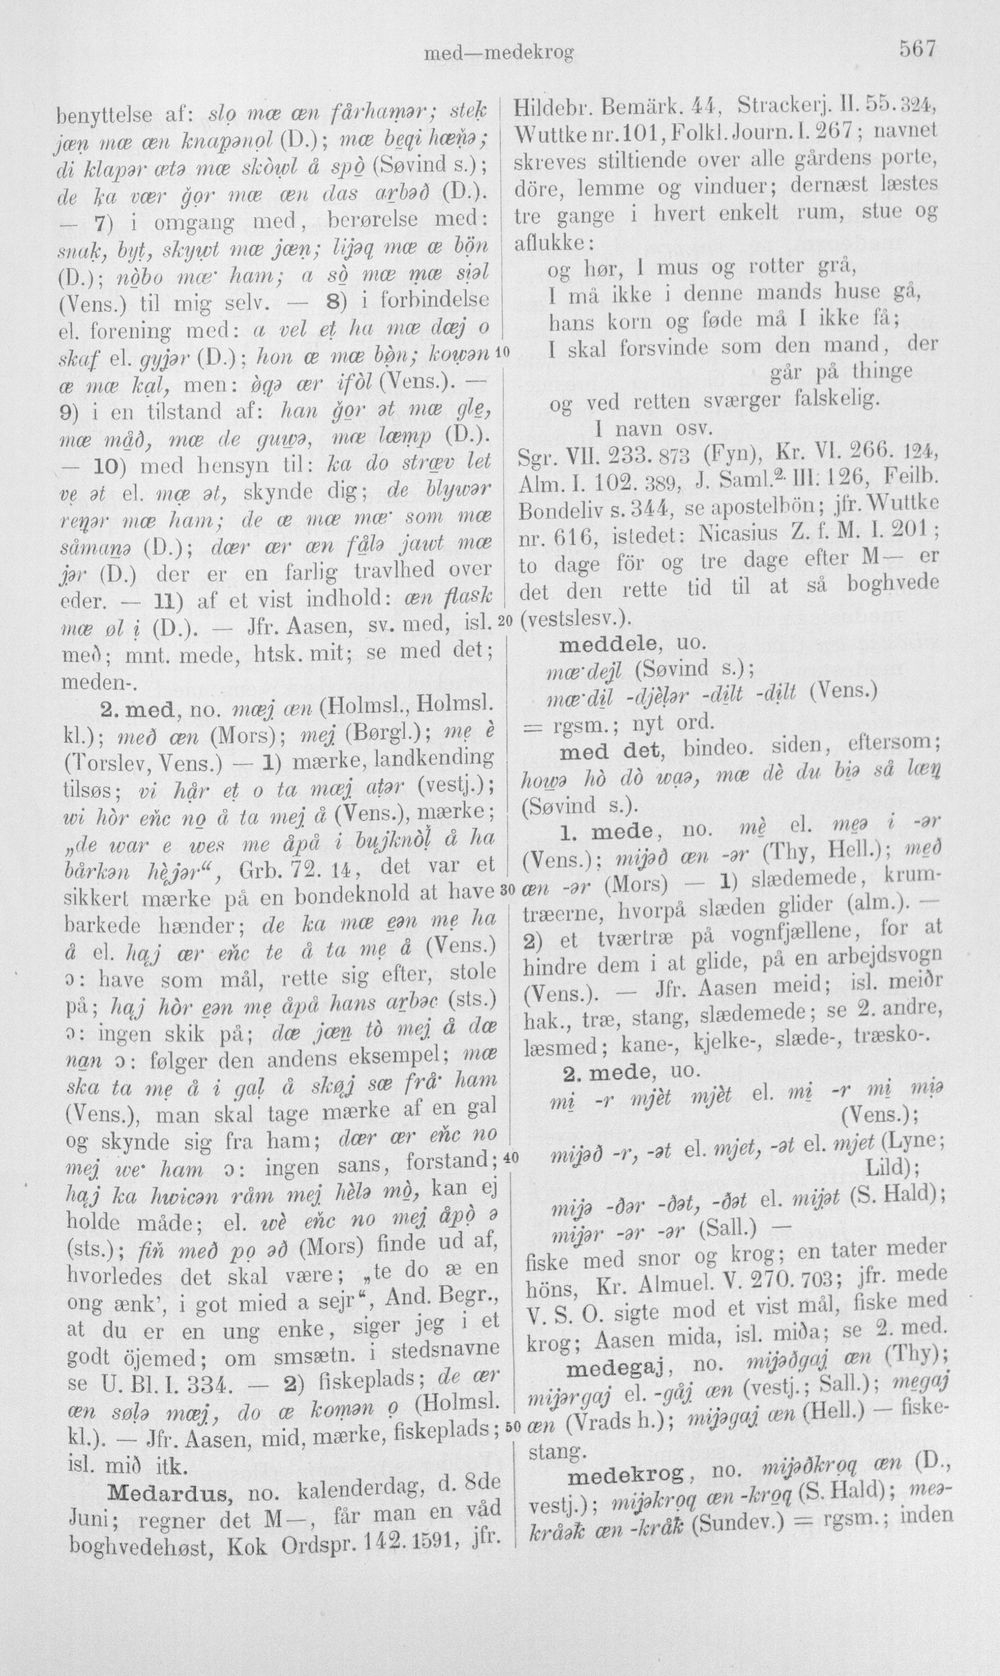 med—medekrog
567
benyttelse af: slo̩ mœ œn fårham̩ər; stek̩
jœn̩ mœ œn knapəno̩l (D.); mœ bęqi hœṅə;
di klapər œtə mœ skòw̩l å spò̩ (Søvind s.);
de k̩a vœr ġo̩r mœ œn das ar̩bəð (D.).
— 7) i omgang med, berørelse med:
snak̩, byt̩, skyw̩t mœ jœn̩; lijəq mœ œ bön̩
(D.); nò̩bo mœ· ham; a sò̩ mœ m̩œ si̩əl
(Vens.) til mig selv. — 8) i forbindelse
el. forening med: a vel et̩ ha mœ dœj o
skaf el. gyj̩ər (D.); hon œ mœ bø̩̀n; kow̩ən 10
œ mœ kal̩, men: ø̀qə œr ifòl (Vens.). —
9) i en tilstand af: han ġo̩r ət mœ glę,
mœ må̩ð, mœ de guw̩ə, mœ lœm̩p (D.).
— 10) med hensyn til: ka do strœ̩v let
vę ət el. mœ ət, skynde dig; de blyw̩ər
ren̩ər mœ ham; de œ mœ mœ· som mœ
såman̩ə (D.); dœr œr œn få̩lə jaw̩t mœ
j̩ər (D.) der er en farlig travlhed over
eder. — 11) af et vist indhold: œn flask
mœ øl i̩ (D.). — Jfr. Aasen, sv. med, isl. 20
með; mnt. mede, htsk. mit; se med det;
meden-.
2. med, no. mœj̩ œn (Holmsl., Holmsl.
kl.); með œn (Mors); mej̩ (Børgl.); mę è
(Torslev, Vens.) — 1) mærke, landkending
tilsøs; vi hå̩r et̩ o ta mœj̩ at̩ər (vestj.);
wi hòr eńc no̩ å ta mej̩ å (Vens.), mærke;
„de war e wes me åpå i bujknòl̩ å ha
bårkən hèj̩ər“, Grb. 72. 14, det var et
sikkert mærke på en bondeknold at have 30
barkede hænder; de ka mœ e̩ən mę ha
å el. ha̩j œr eńc te å ta mę å (Vens.)
ɔ: have som mål, rette sig efter, stole
på; ha̩j hòr e̩ən mę åpå hans ar̩bəc (sts.)
ɔ: ingen skik på; dœ jœn̩ tò mej̩ å dœ
nan̩ ɔ: følger den andens eksempel; mœ
ska ta mę å i gal̩ å skø̩j sœ frå· ham
(Vens.), man skal tage mærke af en gal
og skynde sig fra ham; dœr œr eńc no
mej̩ we· ham ɔ: ingen sans, forstand; 40
ha̩j ka hwicən råm mej̩ hèlə mò̩, kan ej
holde måde; el. wè eńc no mej̩ åpò̩ ə
(sts.); fiń með po̩ əð (Mors) finde ud af,
hvorledes det skal være; „te do æ en
ong ænk’, i got mied a sejr“, And. Begr.,
at du er en ung enke, siger jeg i et
godt öjemed; om smsætn. i stedsnavne
se U. Bl. I. 334. — 2) fiskeplads; de œr
œn sø̩lə mœj̩, do œ kom̩ən o̩ (Holmsl.
kl.). — Jfr. Aasen, mid, mærke, fiskeplads; 50
isl. mið itk.
Medardus, no. kalenderdag, d. 8de
Juni; regner det M—, får man en våd
boghvedehøst, Kok Ordspr. 142. 1591, jfr.
Hildebr. Bemärk. 44, Strackerj. II. 55. 324,
Wuttke nr. 101, Folkl. Journ. I. 267; navnet
skreves stiltiende over alle gårdens porte,
döre, lemme og vinduer; dernæst læstes
tre gange i hvert enkelt rum, stue og
aflukke:
og hør, I mus og rotter grå,
I må ikke i denne mands huse gå,
hans korn og føde må I ikke få;
I skal forsvinde som den mand, der
går på thinge
og ved retten sværger falskelig.
I navn osv.
Sgr. VII. 233. 873 (Fyn), Kr. VI. 266. 124,
Alm. I. 102. 389, J. Saml.² III. 126, Feilb.
Bondeliv s. 344, se apostelbön; jfr. Wuttke
nr. 616, istedet: Nicasius Z. f. M. I. 201;
to dage för og tre dage efter M— er
det den rette tid til at så boghvede
(vestslesv.).
meddele, uo.
mœ·dejl (Søvind s.);
mœ·di̩l -djèl̩ər -di̩lt -di̩lt (Vens.)
= rgsm.; nyt ord.
med det, bindeo. siden, eftersom;
how̩ə hò dò wa̩ə, mœ dè du bi̩ə så lœn̩
(Søvind s.).
1. mede, no. mè̩ el. me̩ə i -ər
(Vens.); mij̩əð œn -ər (Thy, Hell.); me̩ð
œn -ər (Mors) — 1) slædemede, krum-
træerne, hvorpå slæden glider (alm.). —
2) et tværtræ på vognfjællene, for at
hindre dem i at glide, på en arbejdsvogn
(Vens.). — Jfr. Aasen meid; isl. meiðr
hak., træ, stang, slædemede; se 2. andre,
læsmed; kane-, kjelke-, slæde-, træsko-.
2. mede, uo.
mi̩ -r mjèt mjèt el. mi̩ -r mi̩ mi̩ə
(Vens.);
mij̩əð -r, -ət el. mjet, -ət el. mjet (Lyne;
Lild);
mij̩ə -ðər -ðət, -ðət el. mij̩ət (S. Hald);
mij̩ər -ər -ər (Sall.) —
fiske med snor og krog; en tater meder
höns, Kr. Almuel. V. 270. 703; jfr. mede
V. S. O. sigte mod et vist mål, fiske med
krog; Aasen mida, isl. miða; se 2. med.
medegaj, no. mij̩əðgaj̩ œn (Thy);
mij̩ərgaj el. -gåj̩ œn (vestj.; Sall.); me̩gaj
œn (Vrads h.); mij̩əgaj̩ œn (Hell.) — fiske-
stang.
medekrog, no. mij̩əðkro̩q œn (D.,
vestj.); mij̩əkro̩q œn -kro̩q (S. Hald); meə-
kråək̄ œn -kråk̄ (Sundev.) = rgsm.; inden